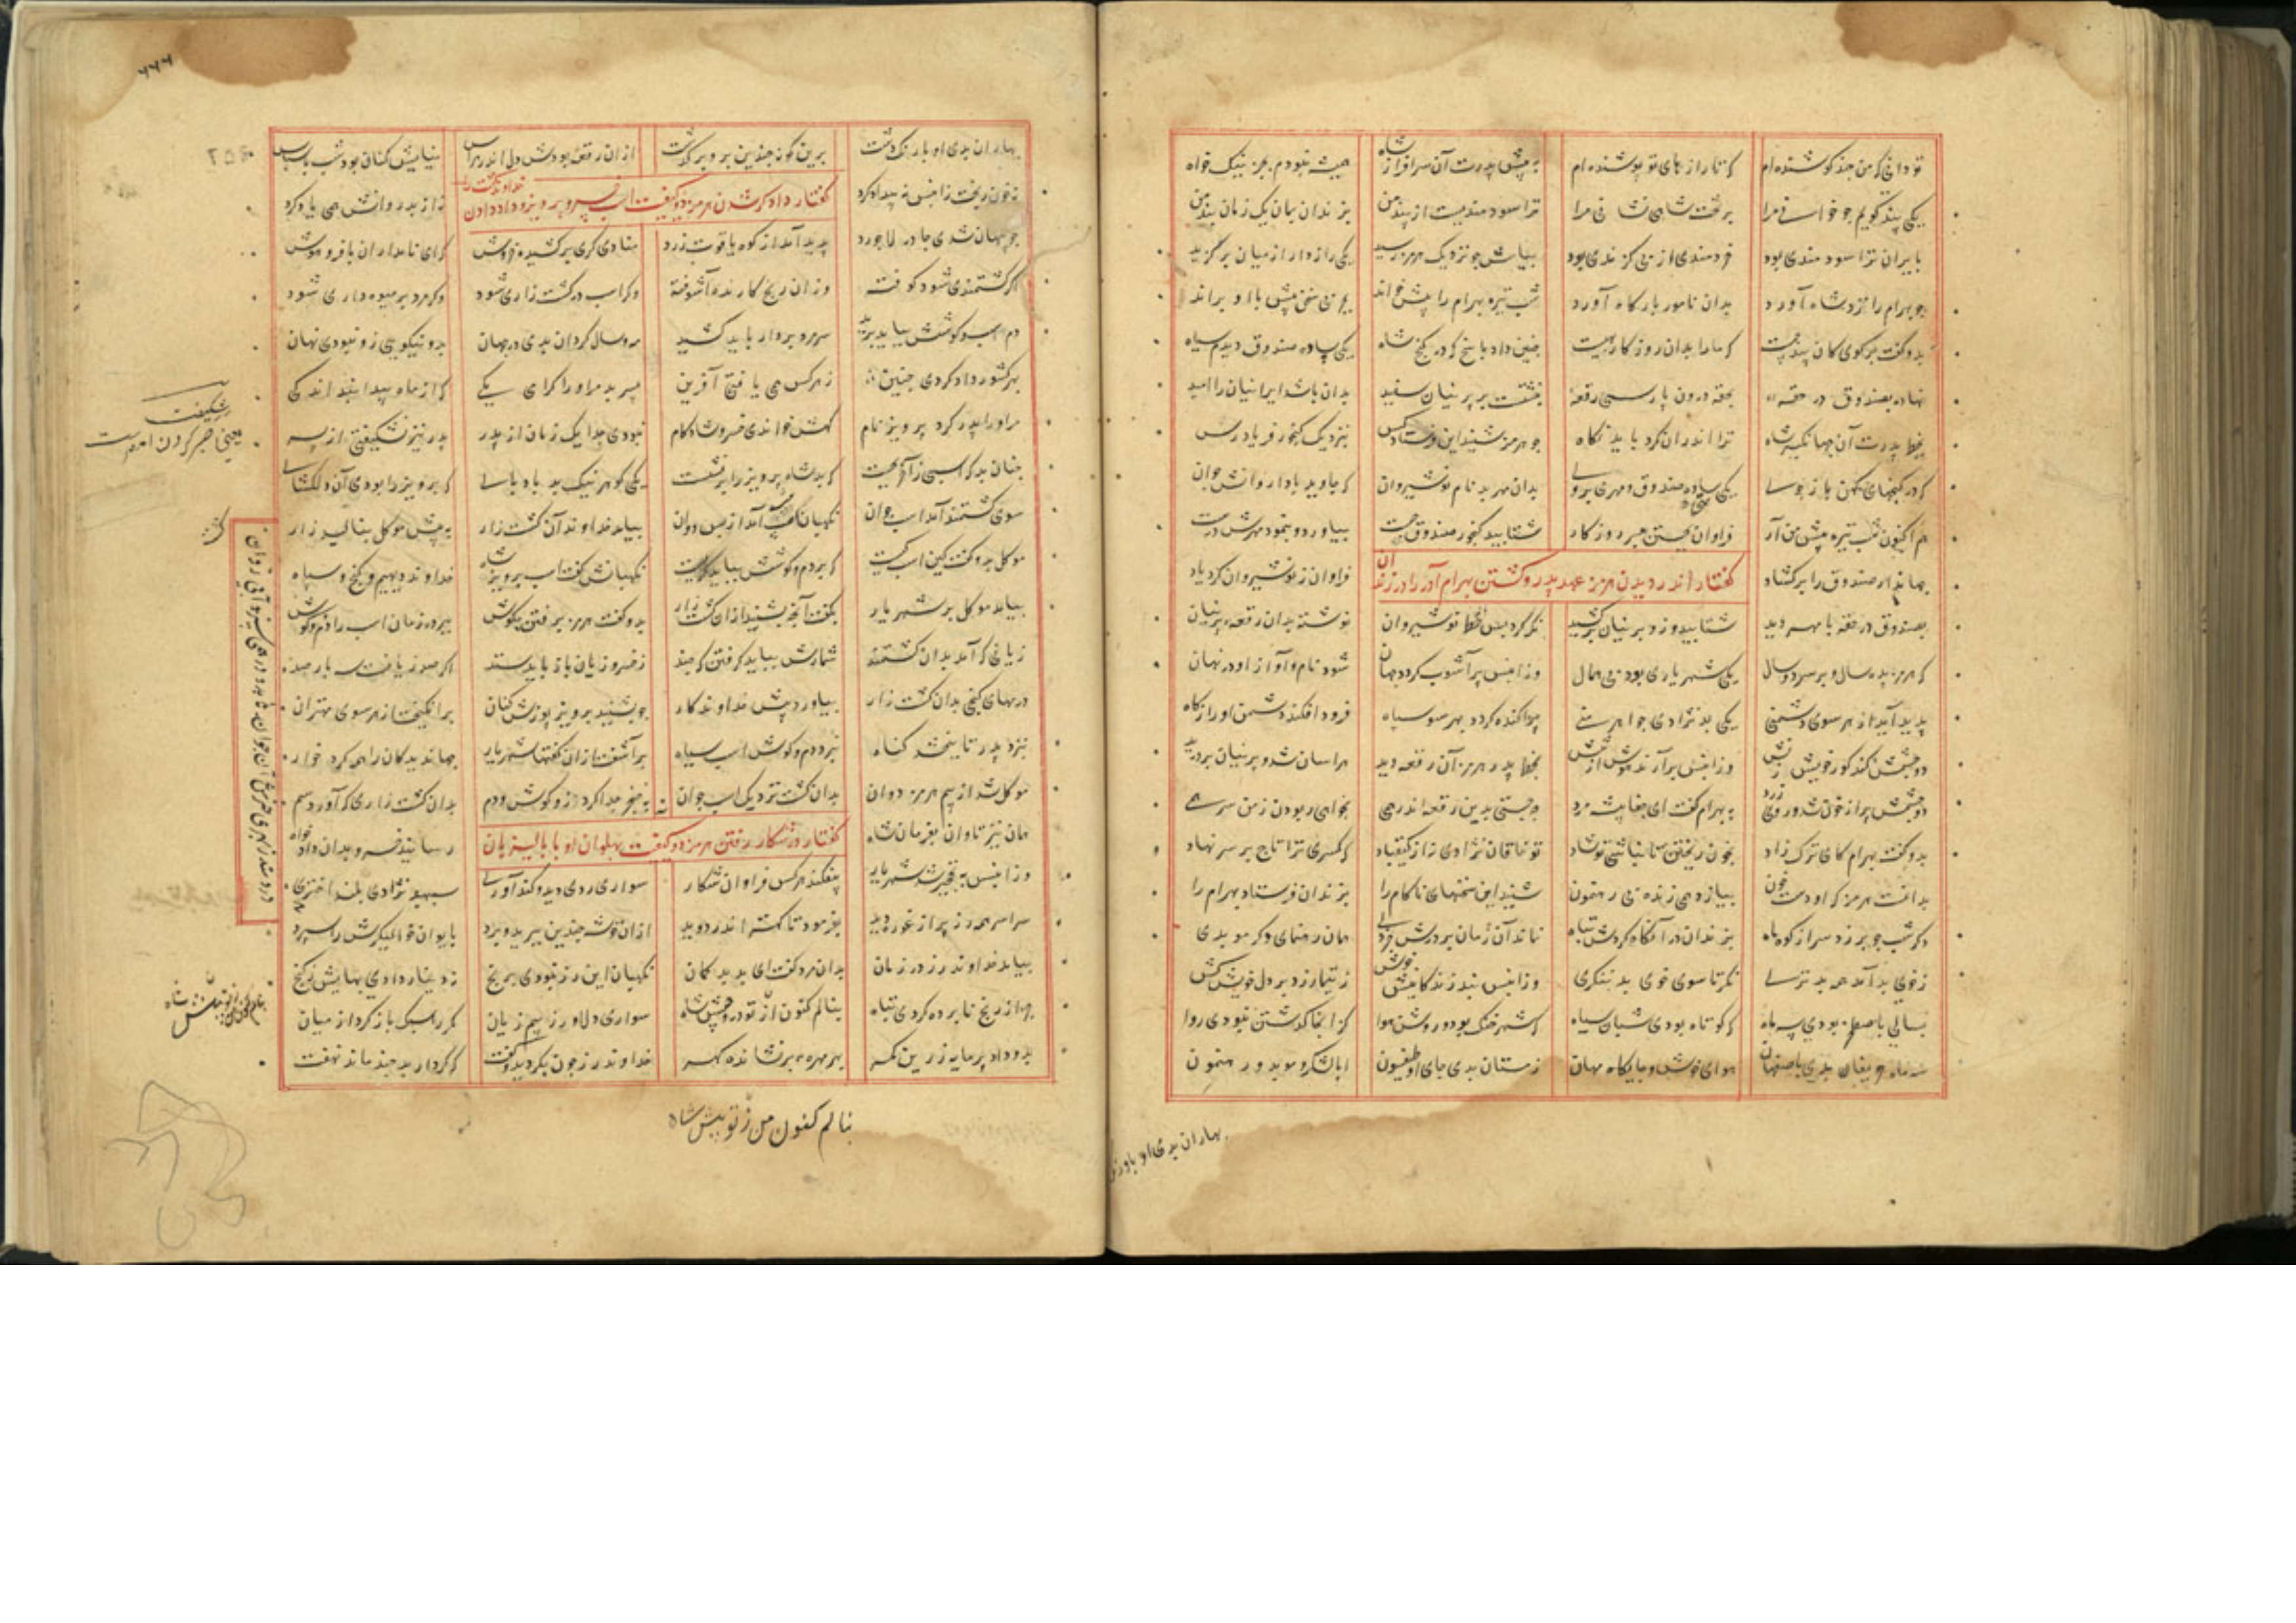 تو دانی که من چند کوشنده ام که تا رازهای تو پوشنده ام به پیش پدرت آن سرافراز شاه همیشه نبودم بجز نیک خواه
یکی پند گویم چو خوانی مرا بر تخت شاهی نشانی مرا ترا سودمندیست از پند من بزندان بمان یک زمان بند من
بایران ترا سودمندی بود خردمندی از بی گزندی بود پیامش چو نزدیک هرمز رسید یکی رازدار از میان برگزید
چو بهرام را نزد شاه آورد بدان نامور بارگاه آورد شب تیره بهرام را پیش خواند بچربی سخن پیش با او براند
بدو گفت برگوی کان پند چیست که ما را بدان روزگار بهیست چنین داد پاسخ که در گنج شاه یکی ساده صندوق دیدم سیاه
نهاده بصندوق در حقه بحقه درون پارسی رقعه نبشتست بر پرنیان سفید بدان باشد ایرانیان را امید
بخط پدرت آن جهانگیر شاه ترا اندران کرد باید نگاه چو هرمز شنید این فرستاد کس بنزدیک گنجور فریادرس
که در گنجهای کهن باز جوی یکی ساده صندوق و مهری بروی بدان مهر بد نام نوشیروان که جاوید بادا روانش جوان
هم اکنون شب تیره پیش من آر فراوان بجستن مبر روزگار شتابید گنجور صندوق جست بیاورد و بنمود مهرش درست
جهاندار صندوق را برگشاد گفتار اندر دیدن هرمز عهد پدر و کشتن بهرام آذر را در زندان فراوان ز نوشیروان کرد یاد
بصندوق در حقه با مهر دید شتابید و زو پرنیان برکشید نگه کرد پس خط نوشیروان نوشته بدان رقعه پرنیان
که هرمز بده سال و بر سر دو سال یکی شهریاری بود بی همال وزان پس پر آشوب گردد جهان شود نام و آواز او در نهان
پدید آید از هر سوی دشمنی یکی بدنژادی چو اهرمنی پراکنده گردد بهر سو سپاه فرود افکند دشمن او را ز گاه
دو چشمش کند کور خویش زنش وزان پس برآرند هوش از تنش بخط پدر هرمز آن رقعه دید هراسان شد و پرنیان بردرید
دو چشمش پر از خون شد و روی زرد به بهرام گفت ای جفاپیشه مرد چه جستی بدین رقعه اندر همی بخواهی ربودن ز من سر همی
بدو گفت بهرام کای ترک زاد بخون ریختن تا نباشی تو شاد تو خاقان نژادی نه از کیقباد که کسری ترا تاج بر سر نهاد
بدانست هرمز که او دست خون بیازد همی زنده بی رهنمون شنید این سخنهای ناکام را بزندان فرستاد بهرام را
دگر شب چو برزد سر از کوه ماه بزندان در آنگاه کردش تباه نماند آن زمان بر درش هان رهنمای و گر موبدی
ز خوی بد آمد همه بدترسی نگر تا سوی خوی بد ننگری وزان پس نبد زندگانیش خوش ز تیمار زد بر دل خویش کش
بسالی باصطخر بودی سه ماه که کوتاه بودی شبان سیاه که شهر خنک بود و روشن هوا کزانجا گذشتن نبودی روا
سه ماه بدی باصفهان هوای خوش و جایگاه مهان زمستان بدی جای او طیسفون ابا لشکر و موبد و رهنمون
بهاران بدی او باروند
۴۴۴
بهاران بدی او باروند دشت برین گونه چندین برو برگذشت از آن رقعه بودش دل اندر هراس نیایش کنان بود شب با سپاس
نه خون ریخت زان پس نه بیداد کرد گفتار دادگر شدن هرمز و کیفیت اسب خسرو پرویز و داد دادن خداوند کشت را ز نزد پدر روانش همی یاد کرد
چو پنهان شدی چادر لاجورد پدید آمد از کوه یاقوت زرد منادی گری برکشیدی خروش که ای نامداران با فر و هوش
اگر کشتمندی شود کوفته وزان رنج کارنده آشوفته وگر اسب در کشت زاری شود وگر مرد بر میوه داری شود
دم اسب و گوشش بباید برید سر مرد بر دار باید کشید دو سال گردان بدی در جهان بد و نیکویی زو نبودی نهان
بهر کشور داد کردی چنین ز هر کس همی یافتی آفرین پسر بد مر او را گرامی یکی که از ماه پیدا نبد اندکی
مر او را پدر کرد پرویز نام گهش خواندی خسرو شادکام نبودی جدا یک زمان از پدر پدر نیز نشکیفتی از پسر
چنان بد که اسبی ز آخر بجست که بد شاه پرویز را برنشست یکی گوهر نیک بد بادپای که پرویز را بود آن دلگشای
سوی کشتمند آمد اسب جوان نگهبان اسب آمد از پس دوان بیامد خداوند آن کشت زار به پیش موکل بنالید زار
موکل بدو گفت کین اسب کیست که بر دم و گوشش بباید گریست نگهبانش گفت اسب پرویز شاه خداوند دیهیم و گنج و سپاه
بیامد موکل بر شهریار بگفت آنچه بشنید از آن کشت زار بدو گفت هرمز برفتن بکوش ببر هم زمان اسب را دم و گوش
زیانی که آمد بدان کشتمند شمارش بباید گرفتن که چند ز خسرو زیان باز باید ستد اگر صد زیانست اگر بار صد
درمهای گنجی بدان کشت زار بیاورد پیش خداوند کار چو بشنید پرویز پوزش کنان برانگیخت از هر سوی مهتران
بنزد پدر تا ببخشد گناه نبرد دم و گوش اسب سیاه برآشفت ازان گفتها شهریار جهاندیدگان را همه کرد خوار
موکل شد از بیم هرمز دوان بدان کشت نزدیک اسب جوان به خنجر جدا کرد زو گوش و دم بدان کشت زاری که آورد سم
همان نیز تاوان بفرمان شاه گفتار در شکار رفتن هرمز و کیفیت پهلوان او با پالیزبان رسانید خسرو بدان دادخواه
وزان پس به نخچیر شد شهریار بیفکند هر کس فراوان شکار سواری ردی مرد کندآوری سپهبد نژادی بلند اختری
سراسر همه رز پر از غوره دید بفرمود تا کهتر اندر دوید ازان خوشه چندین ببرید و برد بایوان خوالیگرش را سپرد
بیامد خداوند رز در زمان بدان مرد گفت ای بد بدگمان نگهبان این رز نبودی برنج نه دینار دادی بهایش نه گنج
چرا از رنج نابرده کردی تباه بنالم کنون از تو در پیش شاه سواری دلاور ز بیم زیان کمر را سبک باز کرد از میان
بدو داد پرمایه زرین کمر بهر مهره بر نشانده گهر خداوند رز چون کمر دید گفت که کردار بد چند ماند نهفت
بنالم کنون من ز تو پیش شاه
شکیفت
یعنی صبر کردن امده است
بنالم کنون من ز تو پیش شاه